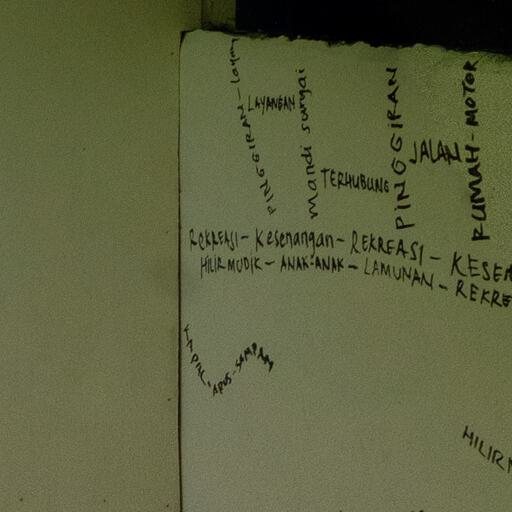 PINGGIRAN-
LAYANGAN
mandi sungai
TERHUBUNG
PINGGIRAN
JALAN
RUMAH-MOTOR
REKREASI - Kesenangan - REKREASI - KESEN
HILIR MUDIK - ANAK-ANAK - LAMUNAN - REKRE
KAPAL-ARUS-SAMPAN
HILIR